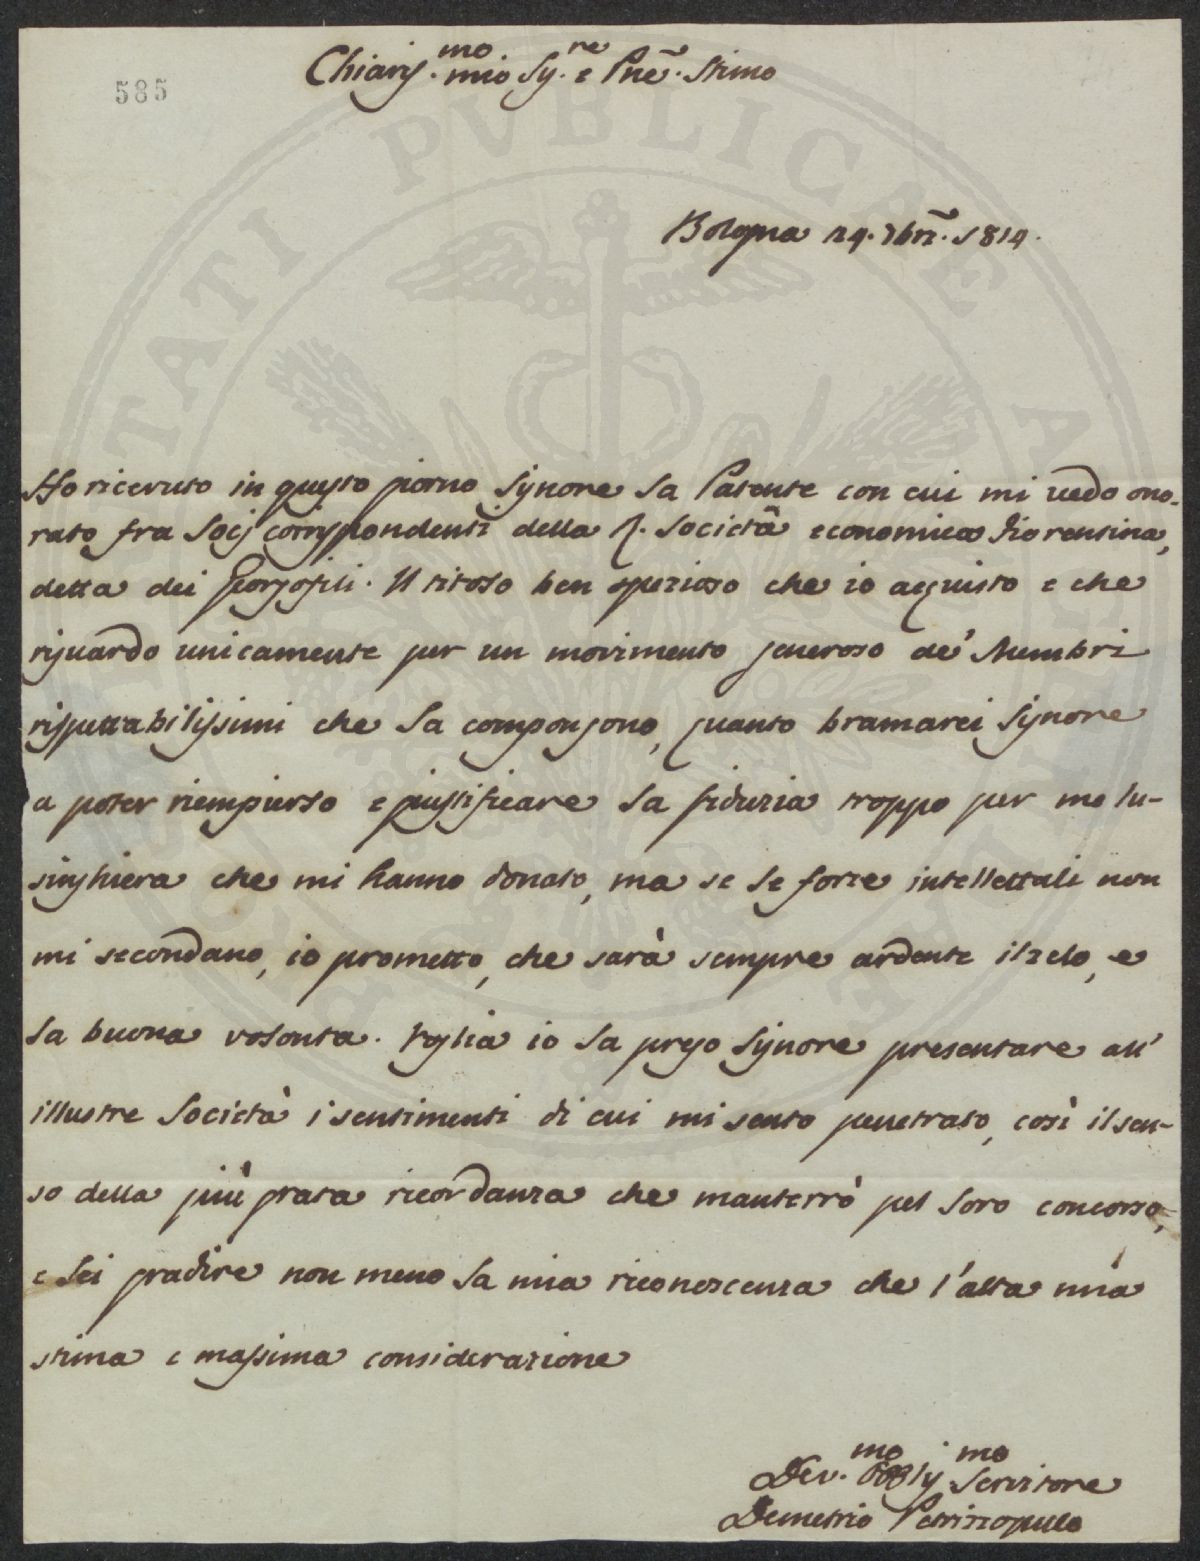 585
Chiariss.mo mio Sig.re e Pne. Stimo
Bologna 24. 7bre. 1814.
Ho ricevuto in questo giorno Signore la Patente con cui mi vedo ono-
rato fra Socj corrispondenti della R. Società economica Fiorentina,
detta dei Georgofili. Il titolo ben spezioso che io acquisto e che
riguardo unicamente per un movimento generoso de' Membri
rispettabilissimi che la compongono, quanto bramarei Signore
a poter riempierlo e giustificare la fiduzia troppo per me lu-
singhiera che mi hanno donato, ma se le forze intellettuali non
mi secondano, io prometto, che sarà sempre ardente il zelo, e
la buona volonta. Voglia io la prego Signore presentare all'
illustre Società i sentimenti di cui mi sento penetrato, così il sen-
so della più grata ricordanza che manterrò pel loro concorso,
e lei gradire non meno la mia riconoscenza che l'alta mia
stima e massima considerazione
Dev.mo Obblig.mo Servitore
Demetrio Petrizzopulo
PVBLICAE